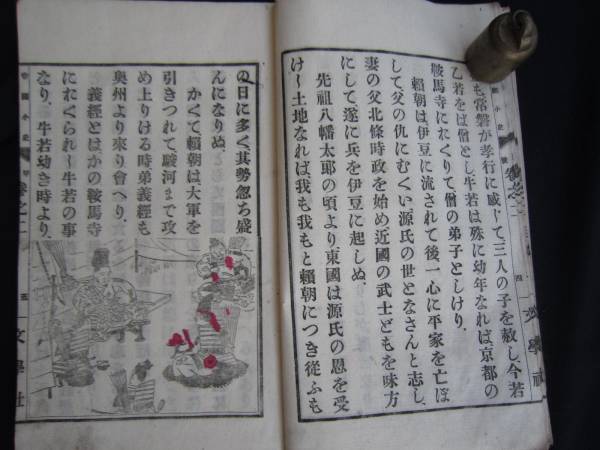 も常磐が孝行に感じて、三人の子を赦し、今若
乙若をば僧とし、牛若は殊に幼年なれば、京都の
鞍馬寺におくりて僧の弟子としけり、
頼朝は伊豆に流されて後一心に平家を亡ぼ
して、父の仇にむくい源氏の世となさんと志し、
妻の父北條時政を始め近國の武士どもを味方
にして、遂に兵を伊豆に起しぬ、
先祖八幡太郎の頃より、東國は源氏の恩を受
けし土地なれば、我も我もと頼朝につき從ふも
四
文學社
の日に多く、其勢忽ち盛
んになりぬ、
かくて、頼朝は大軍を
引きつれて、駿河まで攻
め上りける時弟義經も
奥州より來り會へり、
義經とはかの鞍馬寺
におくられし牛若の事
なり、牛若幼き時より、
帝國小史
巻之二
五
文學社